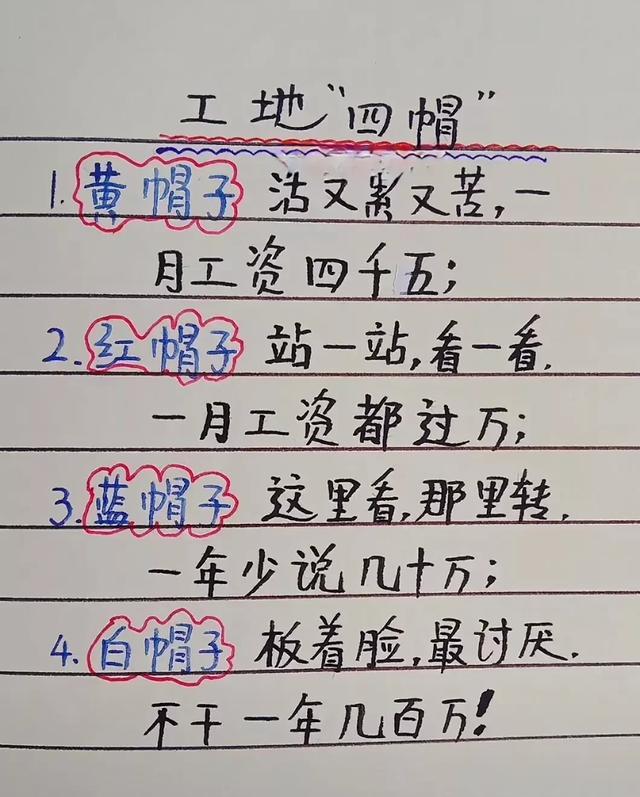 工地"四帽"
1.黄帽子 活又累又苦,一
月工资四千五;
2.红帽子 站一站,看一看.
一月工资都过万;
3.蓝帽子 这里看,那里转.
一年少说几十万;
4.白帽子 板着脸,最讨厌.
不干一年几百万!